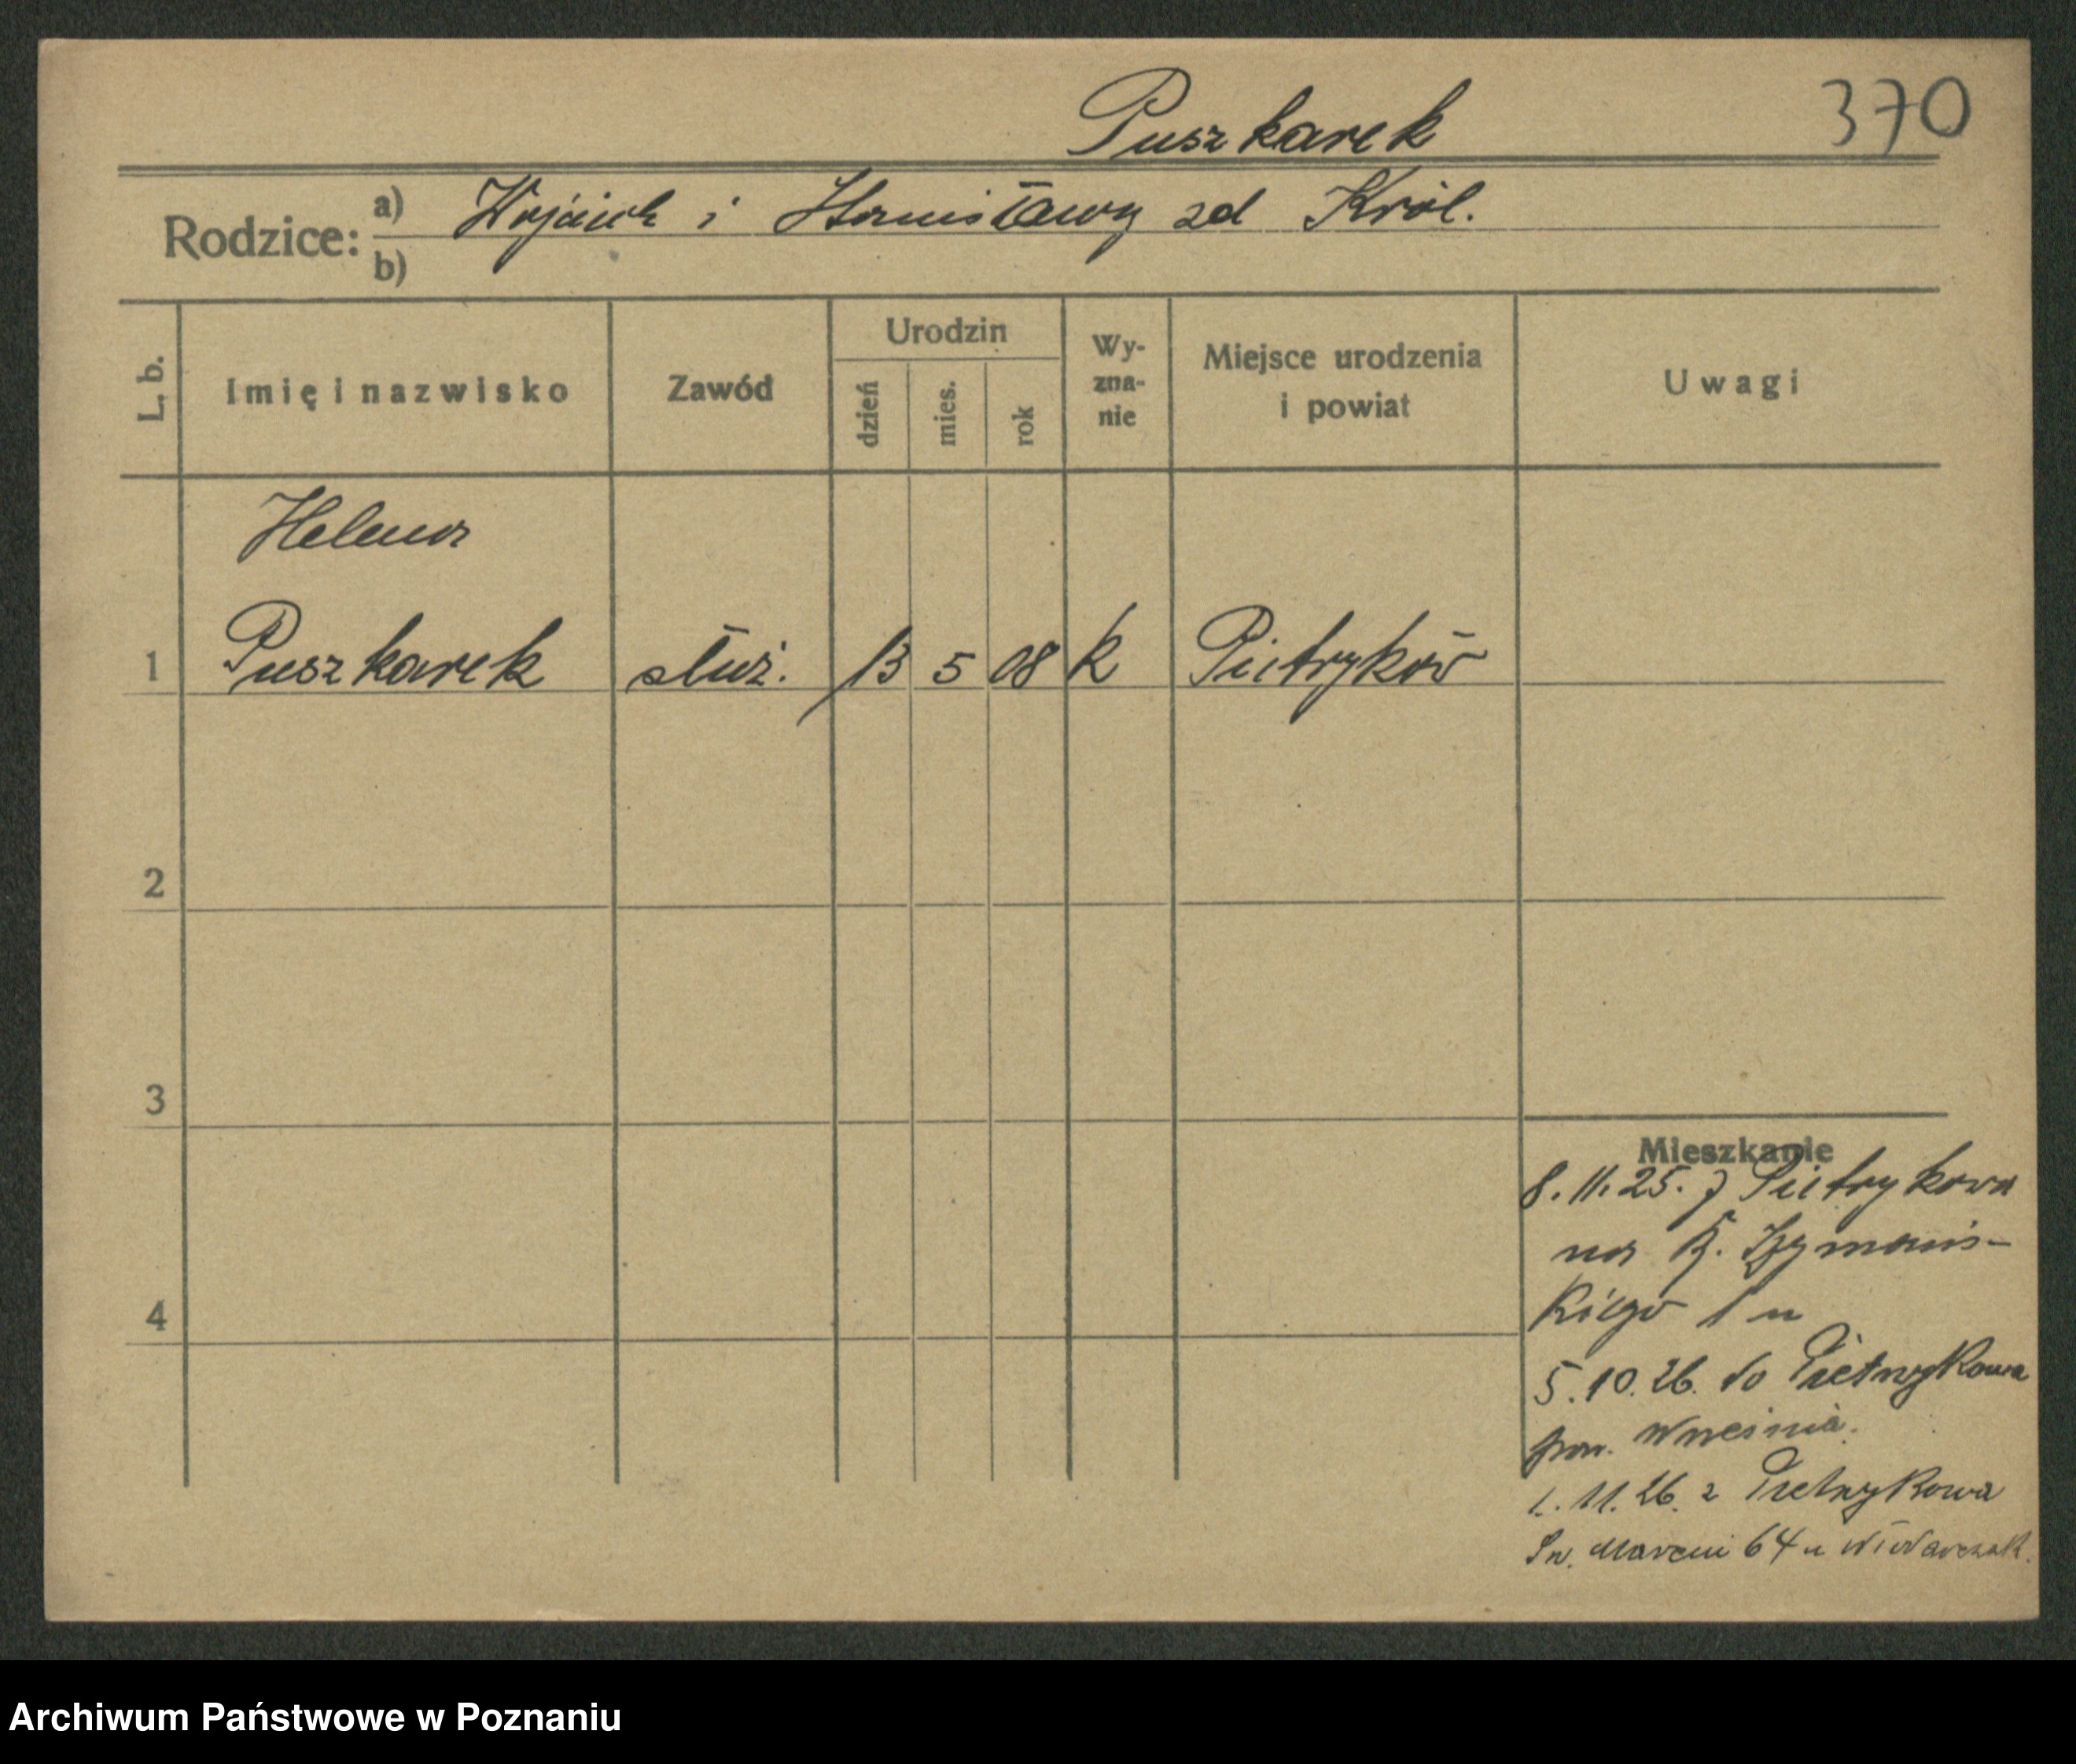 Puszkarek
370
Rodzice: a) Wojciech i Stanisławy zd Król.
b)
L. b.
Imię i nazwisko
Zawód
Urodzin
dzień
mies.
rok
Wy-
zna-
nie
Miejsce urodzenia
i powiat
Uwagi
Helena
1 Puszkarek służ. 13 5 08 k Pietryków
2
3
4
Mieszkanie
8. 11. 25. z Pietrykowa
na
kiego 1 u
5. 10. 26. do Pietrzykowa
pow. Września.
1. 11. 26. z Pietrzykowa
Św. Marcin 64 u Wiwarczak.
Archiwum Państwowe w Poznaniu